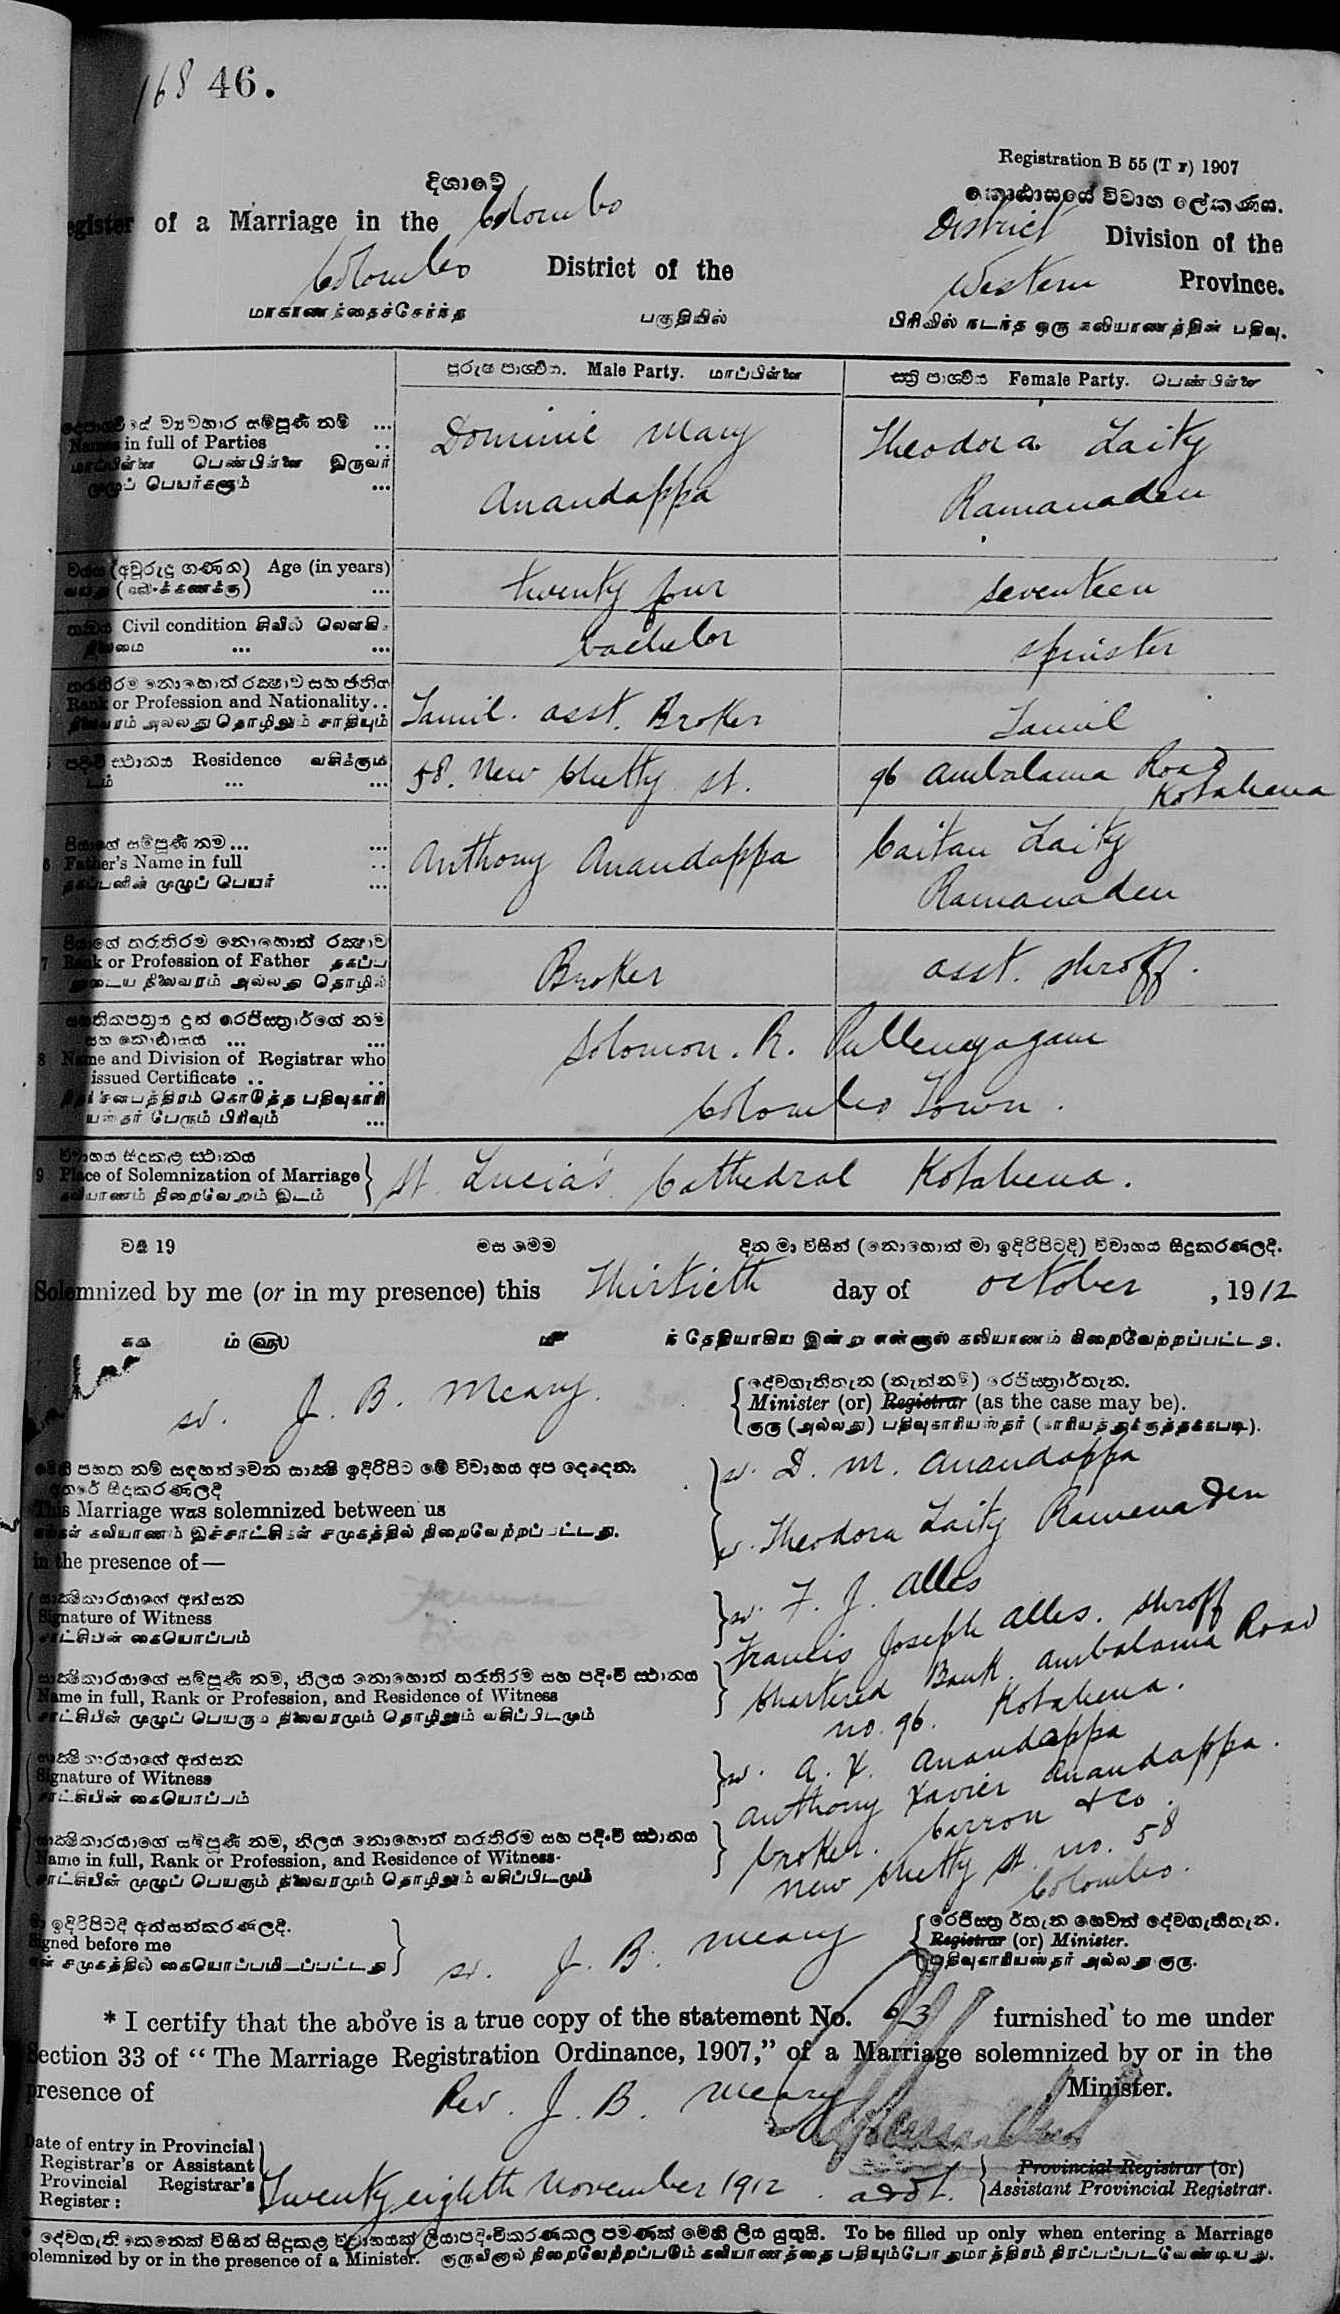 168 46.
Registration B 55 (T r) 1907
දිශාවේ කොඨාසයේ විවාහ ලේකණය.
Register of a Marriage in the Colombo District Division of the
Colombo District of the Western Province.
மாகாணந்தைச்சேர்ந்த பகுதியில் பிரிவில் நடந்த ஒரு கலியாணத்தின் பதிவு.
පුරුෂ පාර්‍ශ්වය. Male Party. மாப்பிள்ளை ස්ත්‍රි පාර්‍ශ්වය Female Party. பெண்பிள்ளை
Names in full of Parties Dominic Mary Theodora Laity
மாப்பிள்ளை பெண்பிள்ளை இருவர்
முழுப் பெயர்களும் ... Anandappa Ramanaden
වයස (අවුරුදු ගණන) Age (in years) twenty four seventeen
Civil condition bachelor spinster
Rank or Profession and Nationality.. Tamil. asst. Broker Tamil
நிலவரம் அல்லது தொழிலும் சாதியும்
5 පදිංචි ස්ථානය Residence வசிக்கும் 58. New Chetty St. 96 Ambalama Road
டம் ... ... Kotahena
පියාගේ සම්පූර්‍ණ නම ... ...
6 Father's Name in full .. Anthony Anandappa Caitan Laity
தகப்பனின் முழுப் பெயர் ... Ramanaden
පියාගේ තරාතිරම නොහොත් රක්‍ෂාව
7 Rank or Profession of Father தகப்ப Broker asst. shroff.
னுடைய நிலவரம் அல்லது தொழில்
සහතිකපත්‍රය දුන් රෙජිස්ත්‍රාර්ගේ නම
සහ කොඨාසය ... ...
8 Name and Division of Registrar who Solomon. R. Pullenayagam
issued Certificate .. .. Colombo Town.
யஸ்தர் பேரும் பிரிவும் ...
විවාහය සිදුකළ ස්ථානය
9 Place of Solemnization of Marriage St. Lucia's Cathedral Kotahena.
கலியாணம் நிறைவேறும் இடம்
වර්‍ෂ 19 මස මෙම දින මා විසින් (නොහොත් මා ඉදිරිපිටදි) විවාහය සිදුකරණලදි.
Solemnized by me (or in my presence) this Thirtieth day of October, 1912
ந் தேதியாகிய இன்று என்னால் கலியாணம் நிறைவேற்றப்பட்டது.
දේවගැතිතැන (නැත්නම්) රෙජිස්ත්‍රාර්තැන.
sd. J. B. Meary. Minister (or) Registrar (as the case may be).
குரு (அல்லது) பதிவுகாரியஸ்தர் (காரியத்துக்குத்தக்கபடி).
මෙහි පහත නම් සඳහන්වෙන සාක්‍ෂි ඉදිරිපිට මේ විවාහය අප දෙදෙනා sd. D. M. Anandappa
අතරේ සිදුකරණලදි
This Marriage was solemnized between us
எங்கள் கலியாணம் இச்சாட்சிகள் சமுகத்தில் நிறைவேற்றப்பட்டது. sd. Theodora Laity Ramenaden
in the presence of—
සාක්‍ෂිකාරයාගේ අත්සන
Signature of Witness sd. F. J. Alles
சாட்சியின் கையொப்பம்
Francis Joseph Alles. Shroff
සාක්‍ෂිකාරයාගේ සම්පූර්‍ණ නම, නිලය නොහොත් තරාතිරම සහ පදිංචි ස්ථානය
Name in full, Rank or Profession, and Residence of Witness Chartered Bank. Ambalama Road
சாட்சியின் முழுப் பெயரும் நிலவரமும் தொழிலும் வசிப்பிடமும் no. 96. Kotahena.
සාක්‍ෂිකාරයාගේ අත්සන
Signature of Witness sd. A. X. Anandappa
சாட்சியின் கையொப்பம்
Anthony Xavier Anandappa.
සාක්‍ෂිකාරයාගේ සම්පූර්‍ණ නම, නිලය නොහොත් තරාතිරම සහ පදිංචි ස්ථානය
Name in full, Rank or Profession, and Residence of Witness. broker. Carron & Co.
சாட்சியின் முழுப் பெயரும் நிலவரமும் தொழிலும் வசிப்பிடமும் New Chetty St. no. 58
Colombo.
මා ඉදිරිපිටදි අත්සන්කරණලදි. රෙජිස්ත්‍රාර්තැන හෙවත් දේවගැතිතැන.
Signed before me sd. J. B. Meary Registrar (or) Minister.
என் சமுகத்தில் கையொப்பமிடப்பட்டது பதிவுகாரியஸ்தர் அல்லது குரு.
* I certify that the above is a true copy of the statement No. 63 furnished to me under
Section 33 of "The Marriage Registration Ordinance, 1907," of a Marriage solemnized by or in the
presence of Rev. J. B. Meary, Minister.
Date of entry in Provincial
Registrar's or Assistant
Provincial Registrar's
Register: Twenty eighth November 1912.
Provincial Registrar (or)
Assistant Provincial Registrar.
To be filled up only when entering a Marriage
solemnized by or in the presence of a Minister. குருவினால் நிறைவேற்றப்படும் கலியாணத்தை பதியும்போதுமாத்திரம் நிரப்பப்படவேண்டியது.